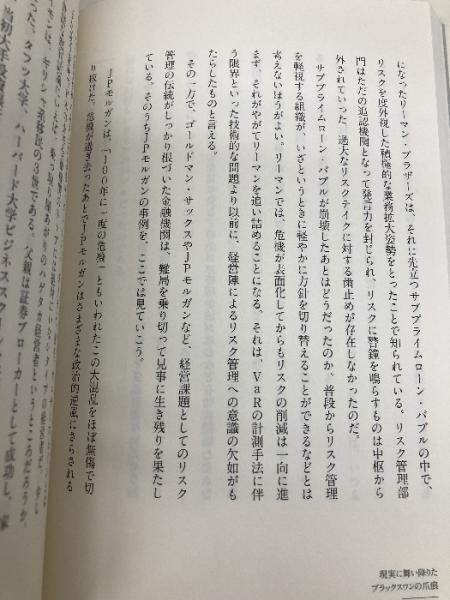 になったリーマン・ブラザーズは、それに先立つサブプライムローン・バブルの中で、
リスクを度外視した積極的な業務拡大姿勢をとったことで知られている。リスク管理部
門はただの追認機関となって発言力を封じられ、リスクに警鐘を鳴らすものは中枢から
外されていった。過大なリスクテイクに対する歯止めが存在しなかったのだ。
サブプライムローン・バブルが崩壊したあとはどうだったのか。普段からリスク管理
を軽視する組織が、いざというときに軽やかに方針を切り替えることができるなどとは
考えないほうがよい。リーマンでは、危機が表面化してからもリスクの削減は一向に進
まず、それがやがてリーマンを追い詰めることになる。それは、VaRの計測手法に伴
う限界といった技術的な問題より以前に、経営陣によるリスク管理への意識の欠如がも
たらしたものと言える。
その一方で、ゴールドマン・サックスやJPモルガンなど、経営課題としてのリスク
管理の伝統がしっかり根づいた金融機関は、難局を乗り切って見事に生き残りを果たし
ている。そのうちJPモルガンの事例を、ここでは見ていこう。
JPモルガンは、「100年に一度の危機」ともいわれたこの大混乱をほぼ無傷で切
り抜けた。危機が過ぎ去ったあとでJPモルガンはさまざまな政治的逆風にさらされる
ハゲタカ経営者というところだろうか。
移民の3世である。父親は証券ブローカーとして成功し、家
タフツ大学、ハーバード大学ビジネススクール
現実に舞い降りた
ブラックスワンの爪痕